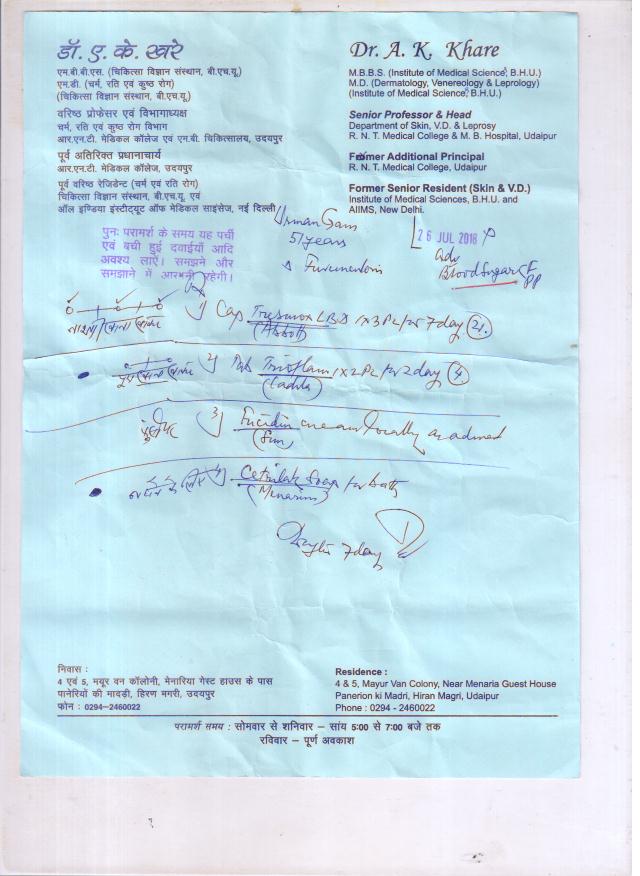 डॉ. ए. के. खरे
एम.बी.बी.एस. (चिकित्सा विज्ञान संस्थान, बी.एच.यू.)
एम.डी. (चर्म, रति एवं कुष्ठ रोग)
(चिकित्सा विज्ञान संस्थान, बी.एच.यू.)
वरिष्ठ प्रोफेसर एवं विभागाध्यक्ष
चर्म, रति एवं कुष्ठ रोग विभाग
आर.एन.टी. मेडिकल कॉलेज एवं एम.बी. चिकित्सालय, उदयपुर
पूर्व अतिरिक्त प्रधानाचार्य
आर.एन.टी. मेडिकल कॉलेज, उदयपुर
पूर्व वरिष्ठ रेजिडेन्ट (चर्म एवं रति रोग)
चिकित्सा विज्ञान संस्थान, बी.एच.यू. एवं
ऑल इण्डिया इंस्टीट्यूट ऑफ मेडिकल साइंसेज, नई दिल्ली
Dr. A. K. Khare
M.B.B.S. (Institute of Medical Science, B.H.U.)
M.D. (Dermatology, Venereology & Leprology)
(Institute of Medical Science, B.H.U.)
Senior Professor & Head
Department of Skin, V.D. & Leprosy
R. N. T. Medical College & M. B. Hospital, Udaipur
Former Additional Principal
R. N. T. Medical College, Udaipur
Former Senior Resident (Skin & V.D.)
Institute of Medical Sciences, B.H.U. and
AIIMS, New Delhi.
51 years
26 JUL 2018
पुनः परामर्श के समय यह पर्ची
एवं बची हुई दवाईयाँ आदि
अवश्य लाएँ। समझने और
समझाने में आसानी रहेगी।
Adv
Blood Sugar F
PP
1) Cap 1x3 for 7day 21
(Abbott)
2) Tab 1x2 for 2day 4
(Cadila)
3) Fucidin cream locally
(Sun)
4) Soap for bath
7day
निवास :
4 एवं 5, मयूर वन कॉलोनी, मेनारिया गेस्ट हाउस के पास
पानेरियों की मादड़ी, हिरण मगरी, उदयपुर
फोन : 0294-2460022
Residence :
4 & 5, Mayur Van Colony, Near Menaria Guest House
Panerion ki Madri, Hiran Magri, Udaipur
Phone : 0294 - 2460022
परामर्श समय : सोमवार से शनिवार – सांय 5:00 से 7:00 बजे तक
रविवार – पूर्ण अवकाश